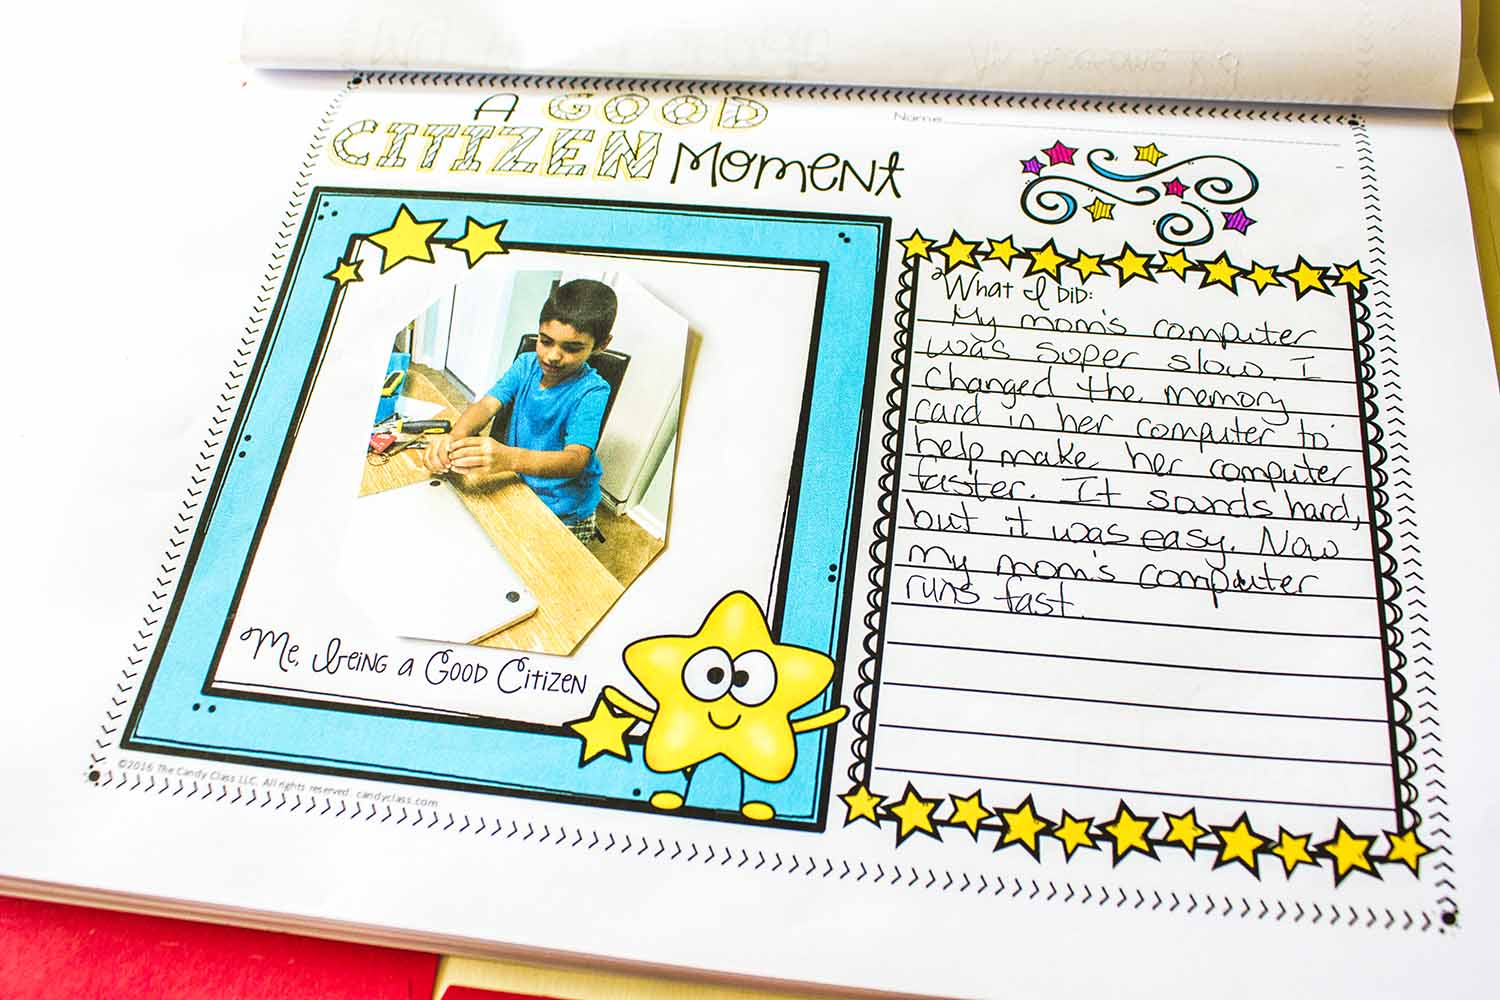 A GOOD
CITIZEN Moment
Name
What I DID:
My mom's computer
was super slow. I
changed the memory
card in her computer to
help make her computer
faster. It sounds hard,
but it was easy. Now
my mom's computer
runs fast.
Me, being a Good Citizen
©2016 The Candy Class LLC. All rights reserved. candyclass.com